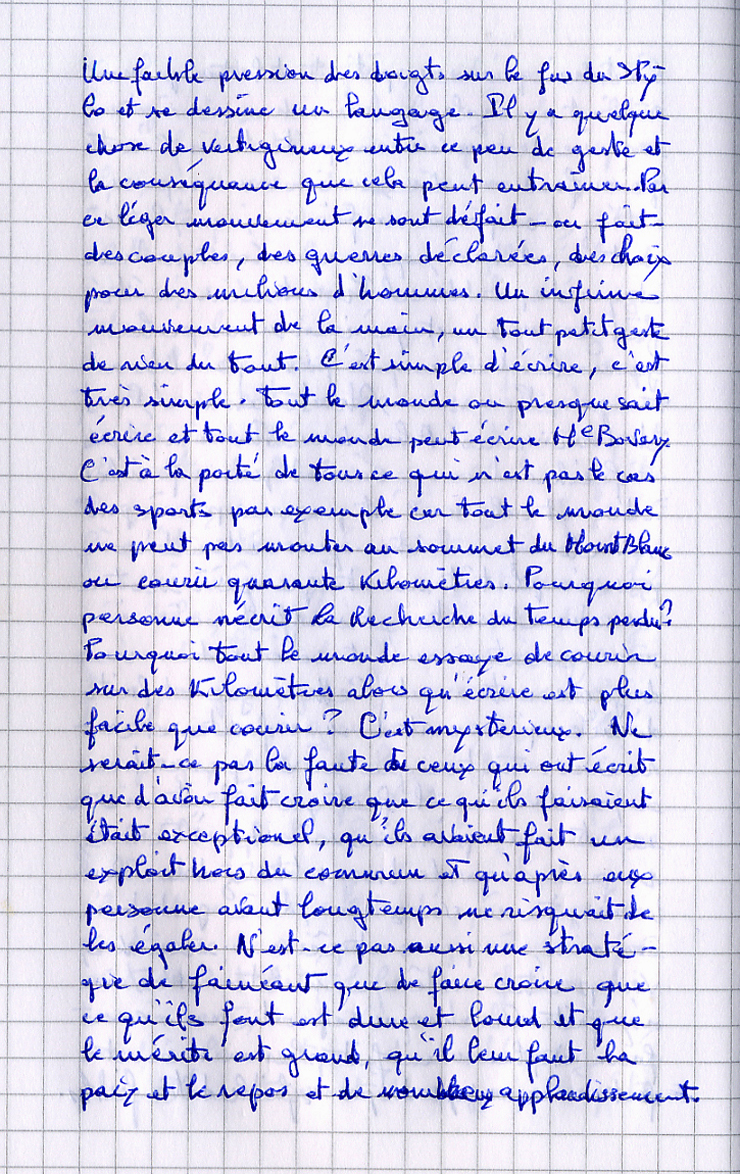 Une faible pression des doigts sur le fus du sty-
lo et se dessine un langage. Il y a quelque
chose de vertigineux entre ce peu de geste et
la conséquance que cela peut entraîner. Par
ce léger mouvement se sont défait - ou fait -
des couples, des guerres déclarées, des choix
pour des milions d'hommes. Un infime
mouvement de la main, un tout petit geste
de rien du tout. C'est simple d'écrire, c'est
très simple. Tout le monde ou presque sait
écrire et tout le monde peut écrire Me Bovary
C'est à la porté de tous ce qui n'est pas le cas
des sports par exemple car tout le monde
ne peut pas monter au sommet du Mont Blanc
ou courir quarante Kilomètres. Pourquoi
personne n'écrit la Recherche du temps perdu?
Pourquoi tout le monde essaye de courir
sur des Kilomètres alors qu'écrire est plus
facile que courir? C'est mysterieux. Ne
serait-ce pas la faute de ceux qui ont écrit
que d'avoir fait croire que ce qu'ils faisaient
était exceptionel, qu'ils avaient fait un
exploit hors du commun et qu'après eux
personne avant longtemps ne risquait de
les égaler. N'est-ce pas aussi une straté-
gie de fainéant que de faire croire que
ce qu'ils font est dure et lourd et que
le mérite est grand, qu'il leur faut la
paix et le repos et de nombreux applaudissement.